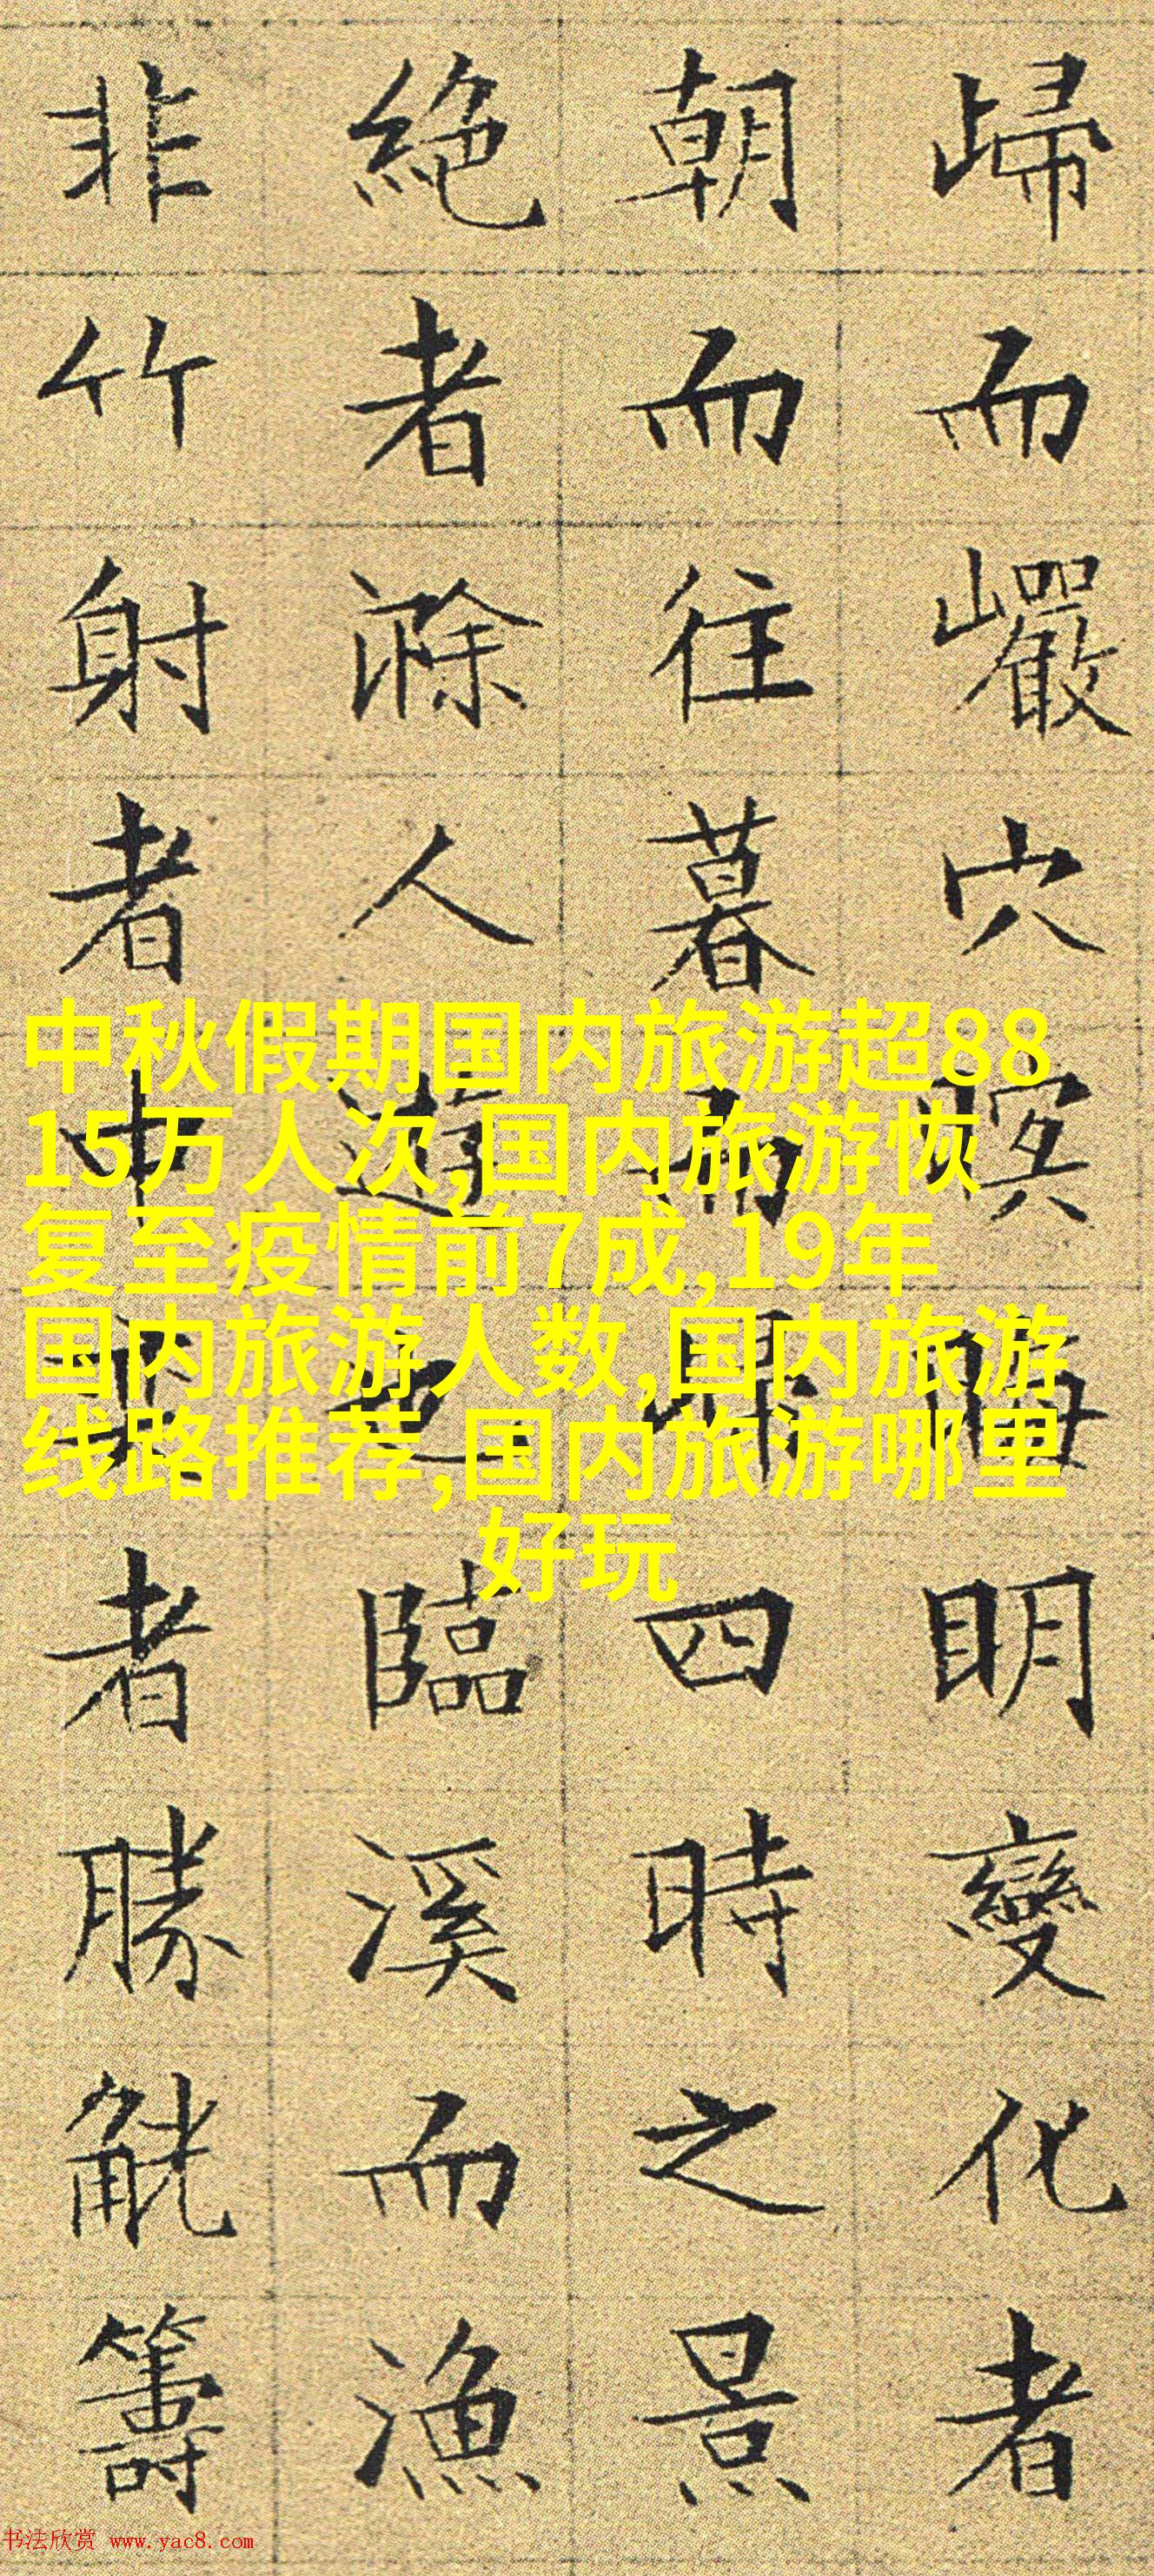 歸而巖穴暝晦明變化者
朝而往暮而歸四時之景
絕者滁人遊也臨溪而漁
非竹射者中者勝觥籌
中秋假期国内旅游超88
15万人次,国内旅游恢
复至疫情前7成,19年
国内旅游人数,国内旅游
线路推荐,国内旅游哪里
好玩
书法欣赏 www.yac8.com